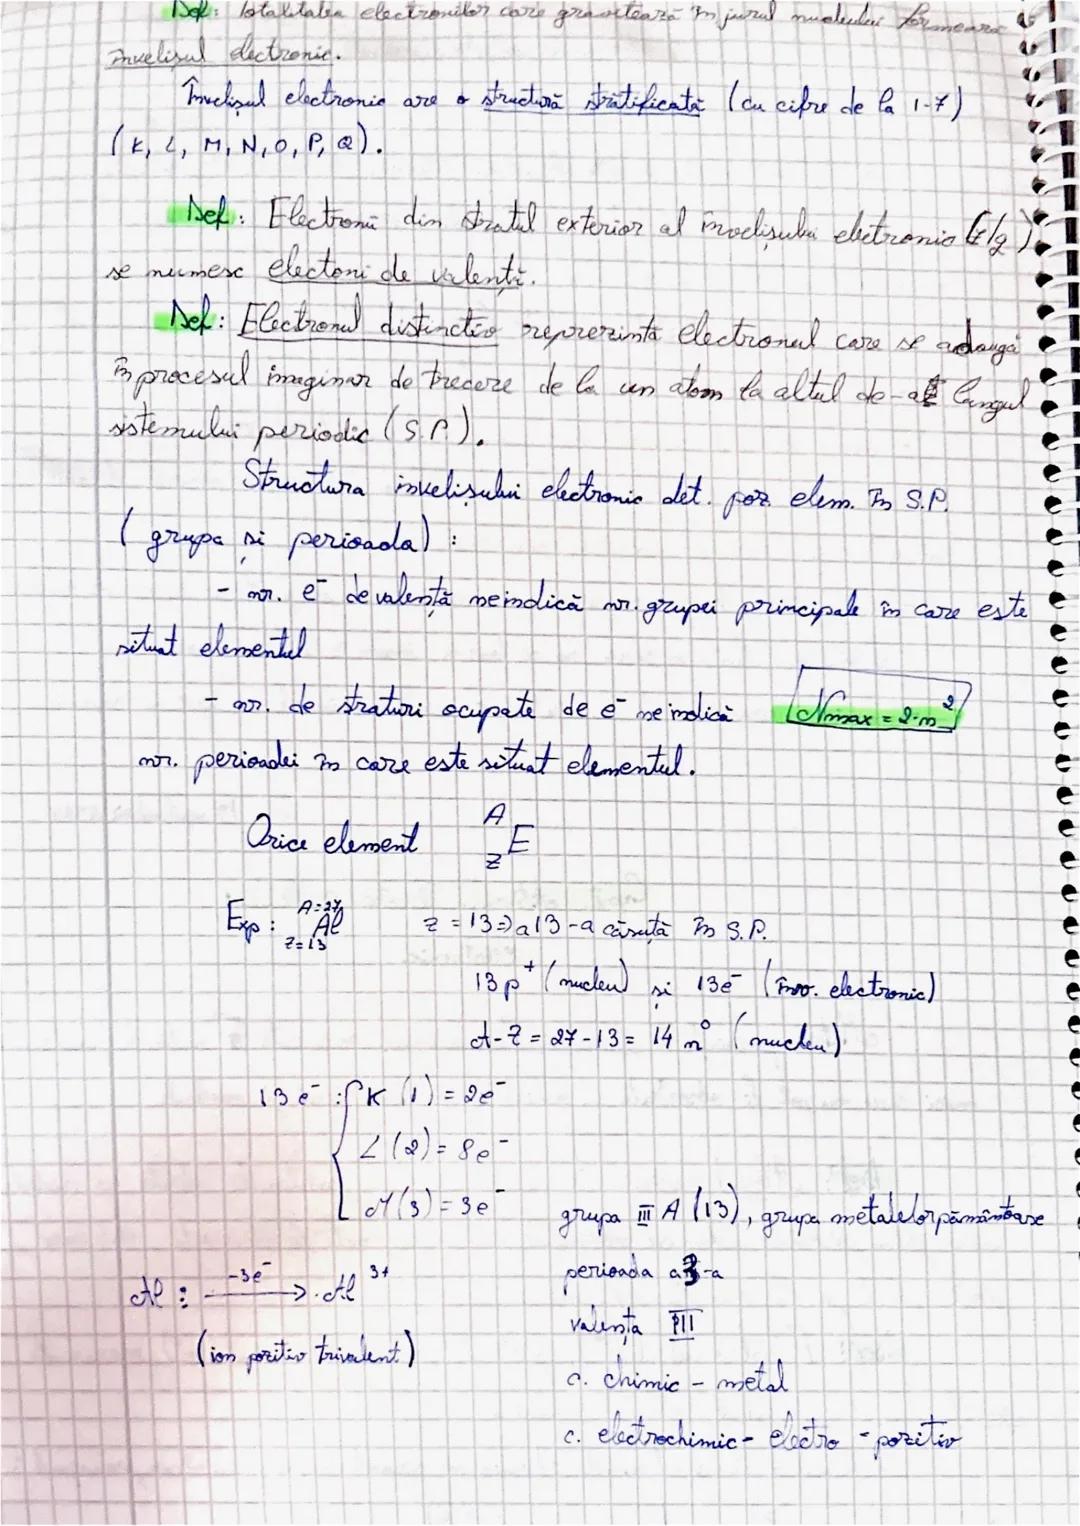 Def: Totalitatea electronilor care gravitează în jurul nucleului formează
învelișul electronic.
Învelișul electronic are o structură stratificată (cu cifre de la 1-7)
(K, L, M, N, O, P, Q).
Def: Electronii din stratul exterior al învelișului electronic
se numesc electoni de valență.
Def: Electronul distinctiv reprezintă electronul care se adaugă
în procesul imaginar de trecere de la un atom la altul de-a lungul
sistemului periodic (S.P.).
Structura învelișului electronic det. poz. elem. în S.P.
(grupa și perioada) :
- nr. e⁻ de valență ne indică nr. grupei principale în care este
situat elementul
- nr. de straturi ocupate de e⁻ ne indică
Nmax = 2·n²
nr. perioadei în care este situat elementul.
Orice element A Z E
Exp: A=27 Z=13 Al z = 13 => a 13-a căsuță în S.P.
13p⁺ (nucleu) și 13e⁻ (înv. electronic)
A-Z = 27-13 = 14 n⁰ (nucleu)
13 e⁻ : { K (1) = 2e⁻
L (2) = 8e⁻
M (3) = 3e⁻
grupa III A (13), grupa metalelor pământoase
perioada a 3-a
Al : -3e⁻ → Al³⁺
valența III
(ion pozitiv trivalent)
c. chimic - metal
c. electrochimic - electro - pozitiv